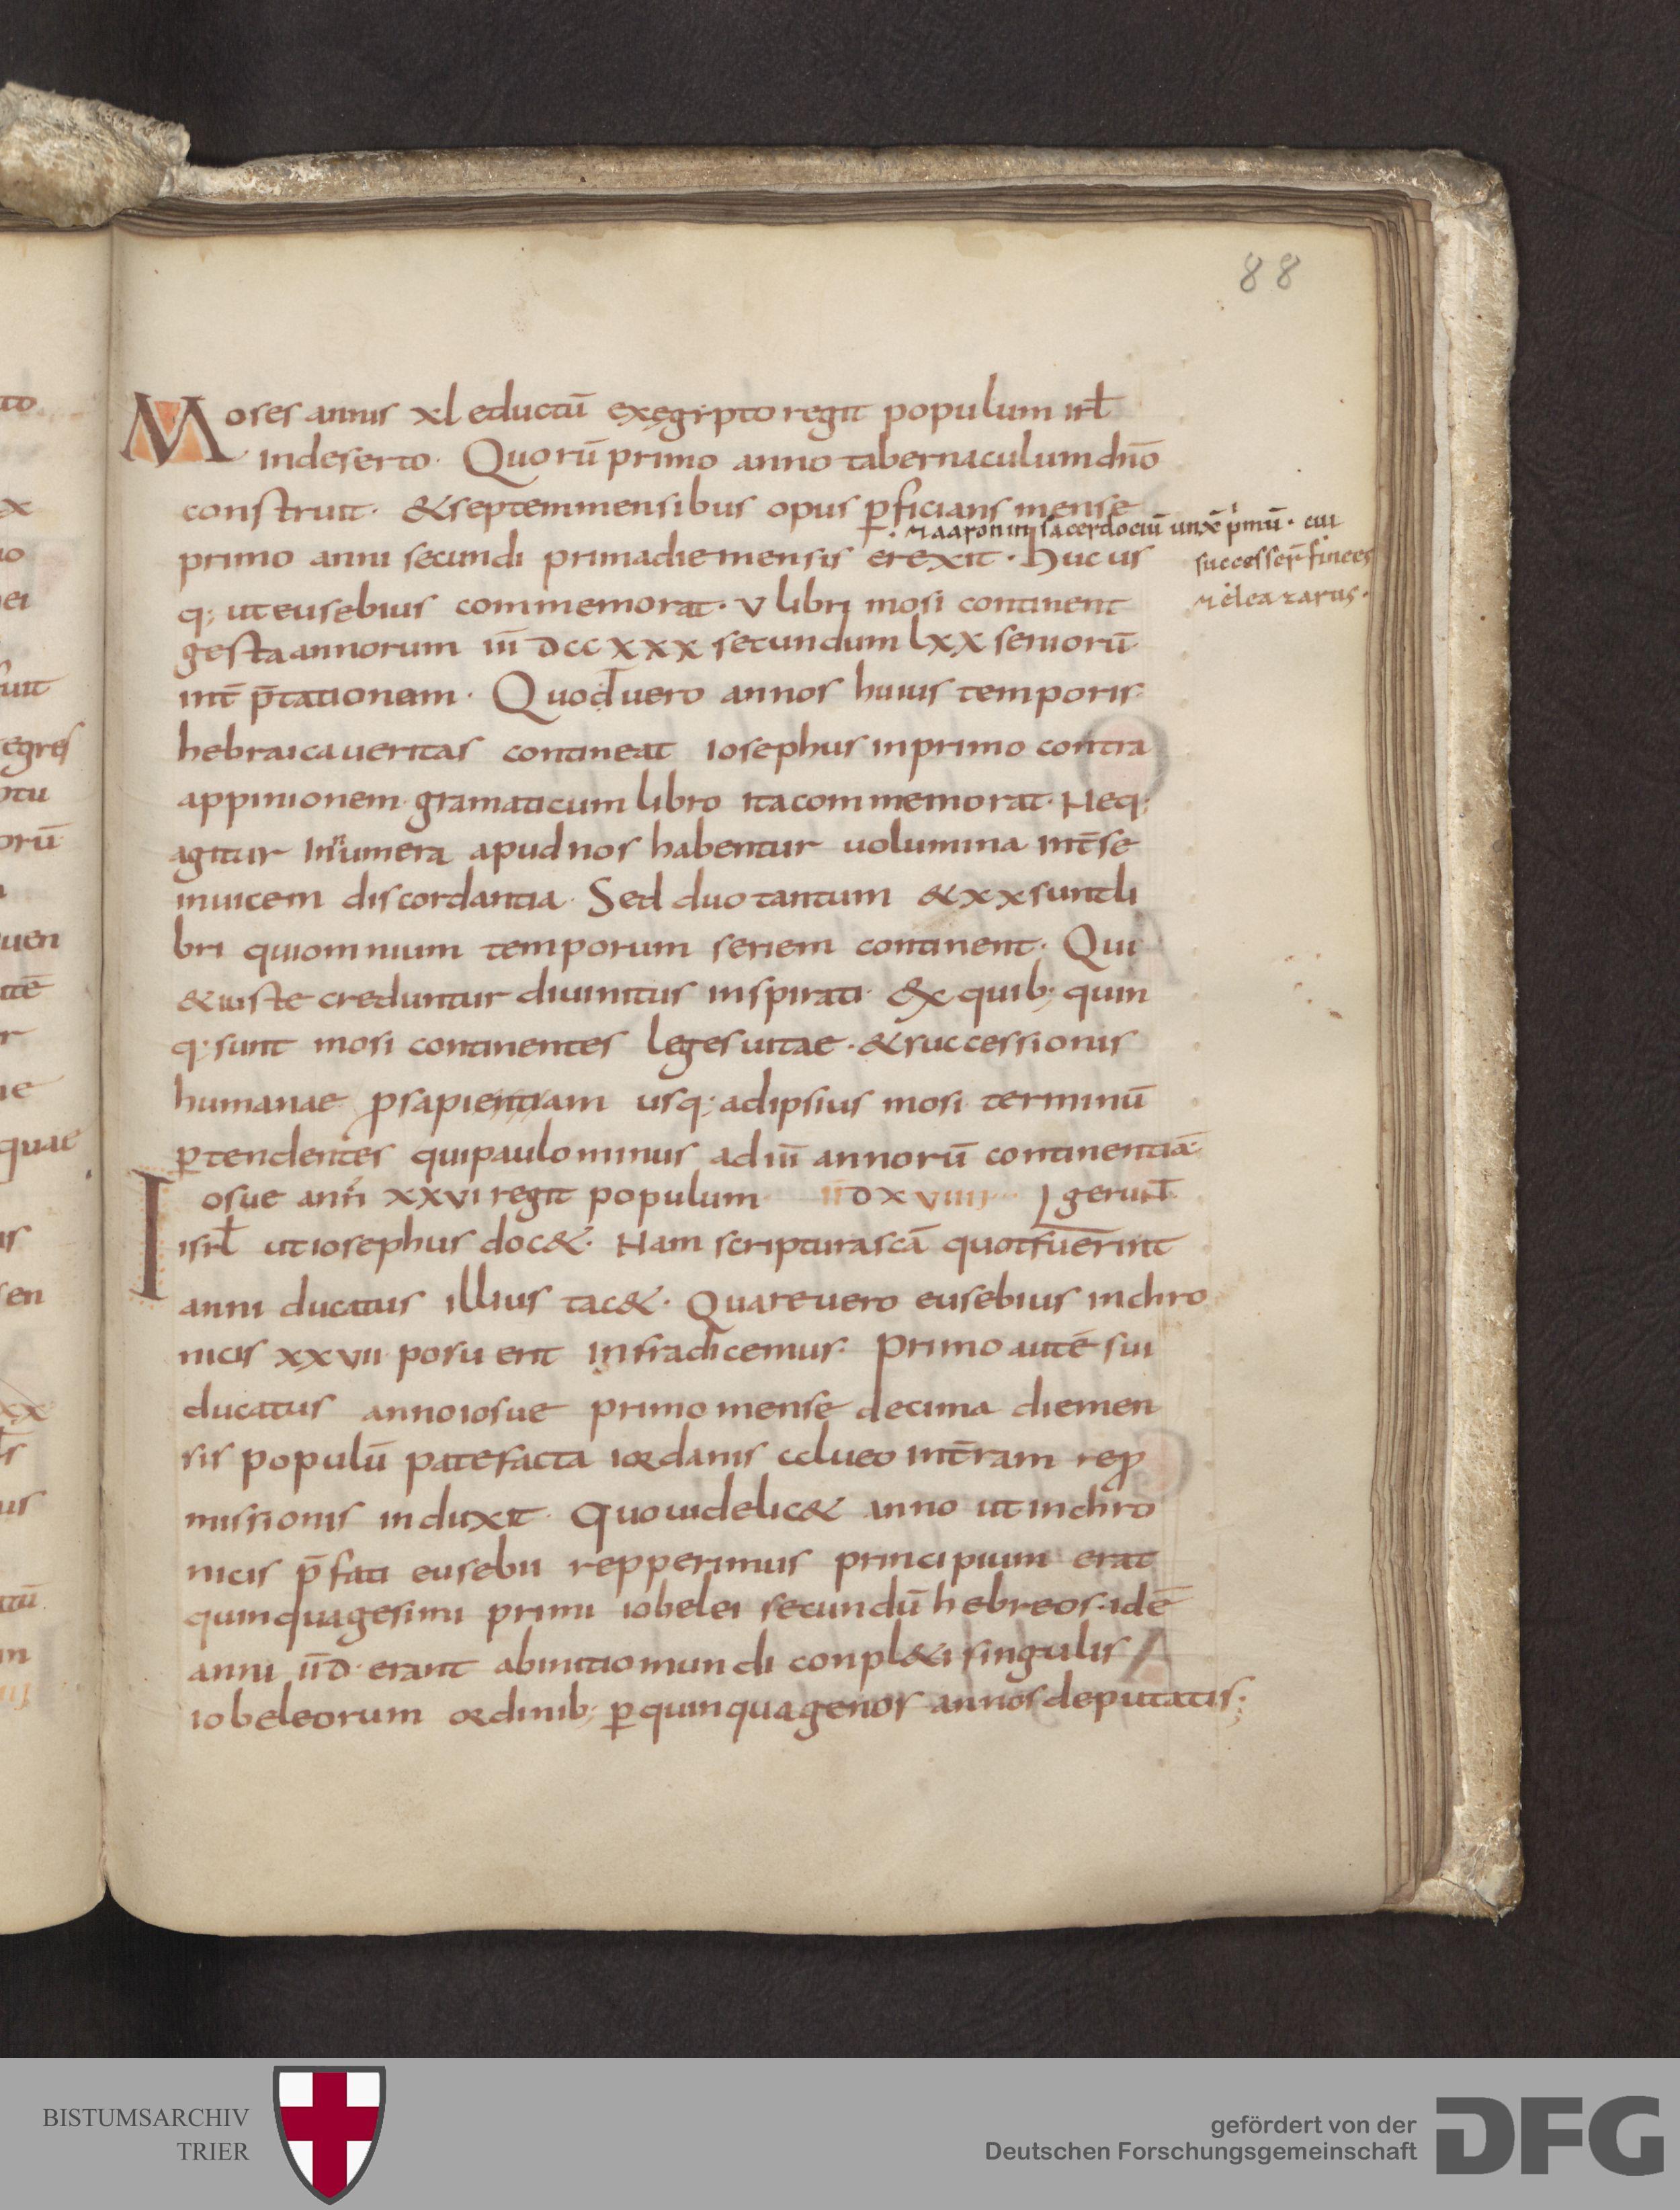 88
Moses annis xl eductū exęgipto regit populum isrł
indeserto. Quorū primo anno tabernaculum dn̄o
construit. & septem mensibus opus ꝑficians mense
primo anni secundi prima die mensis erexit. Huc us
aaron in sacerdociū unx̄ pͥmū. cui
successer̄ finees
eleazarus.
q; ut eusebius commemorat. v libri mosi continent
gesta annorum iii dccxxx secundum lxx seniorū
int̄ p̄tationem. Quod uero annos huius temporis
hebraica ueritas contineat iosephus in primo contra
appinionem gramaticum libro ita commemorat. Neq;
agitur Innumera apud nos habentur uolumina int̄ se
inuicem discordantia. Sed duo tantum & xx sunt li
bri qui omnium temporum seriem continent. Qui
& iuste creduntur diuinitus inspirati. Ex quib; quin
q; sunt mosi continentes leges uitae. & successionis
humanae ꝓsapientiam usq; ad ipsius mosi terminū
ꝑtendentes qui paulo minus ad iii annorū continentiā
gerunt̄
Iosue ann̄ xxvi regit populum iidxviiii
isrł ut iosephus doc&. Nam scriptura scā quot fuerint
anni ducatus illius tac&. Quare uero eusebius in chro
nicis xxvii posuerit infra dicemus. Primo autē sui
ducatus anno iosue primo mense decima die men
sis populū patefacta iordanis cclueo int̄ram rep̱ꝓ
missionis induxit. Quo uidelic& anno ut in chro
nicis p̄fati eusebii repperimus principium erat
quinquagesimi primi iobelei secundū hebreos. idē
anni iid erant ab initio mundi conpl&i singulis
iobeleorum ordinib; ꝑ quinquagenos annos deputatis;
BISTUMSARCHIV
TRIER
gefördert von der
Deutschen Forschungsgemeinschaft
DFG